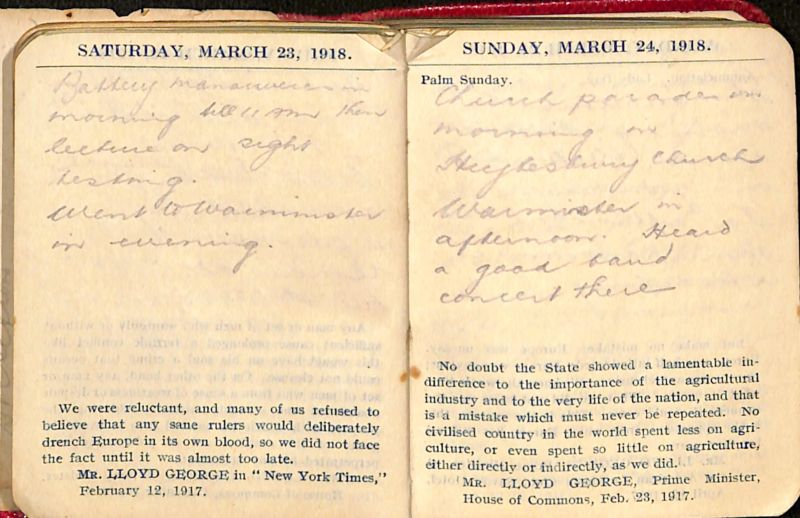 SATURDAY, MARCH 23, 1918.
Battery manouveres in
morning till 11 am then
lecture on sight
testing.
Went to Warminster
in evening.
We were reluctant, and many of us refused to
believe that any sane rulers would deliberately
drench Europe in its own blood, so we did not face
the fact until it was almost too late.
MR. LLOYD GEORGE in " New York Times,"
February 12, 1917.
SUNDAY, MARCH 24, 1918.
Palm Sunday.
Church parade in
morning in
Heytesbury Church
Warminster in
afternoon. Heard
a good band
concert there
No doubt the State showed a lamentable in-
difference to the importance of the agricultural
industry and to the very life of the nation, and that
is a mistake which must never be repeated. No
civilised country in the world spent less on agri-
culture, or even spent so little on agriculture,
either directly or indirectly, as we did.
MR. LLOYD GEORGE, Prime Minister,
House of Commons, Feb. 23, 1917.